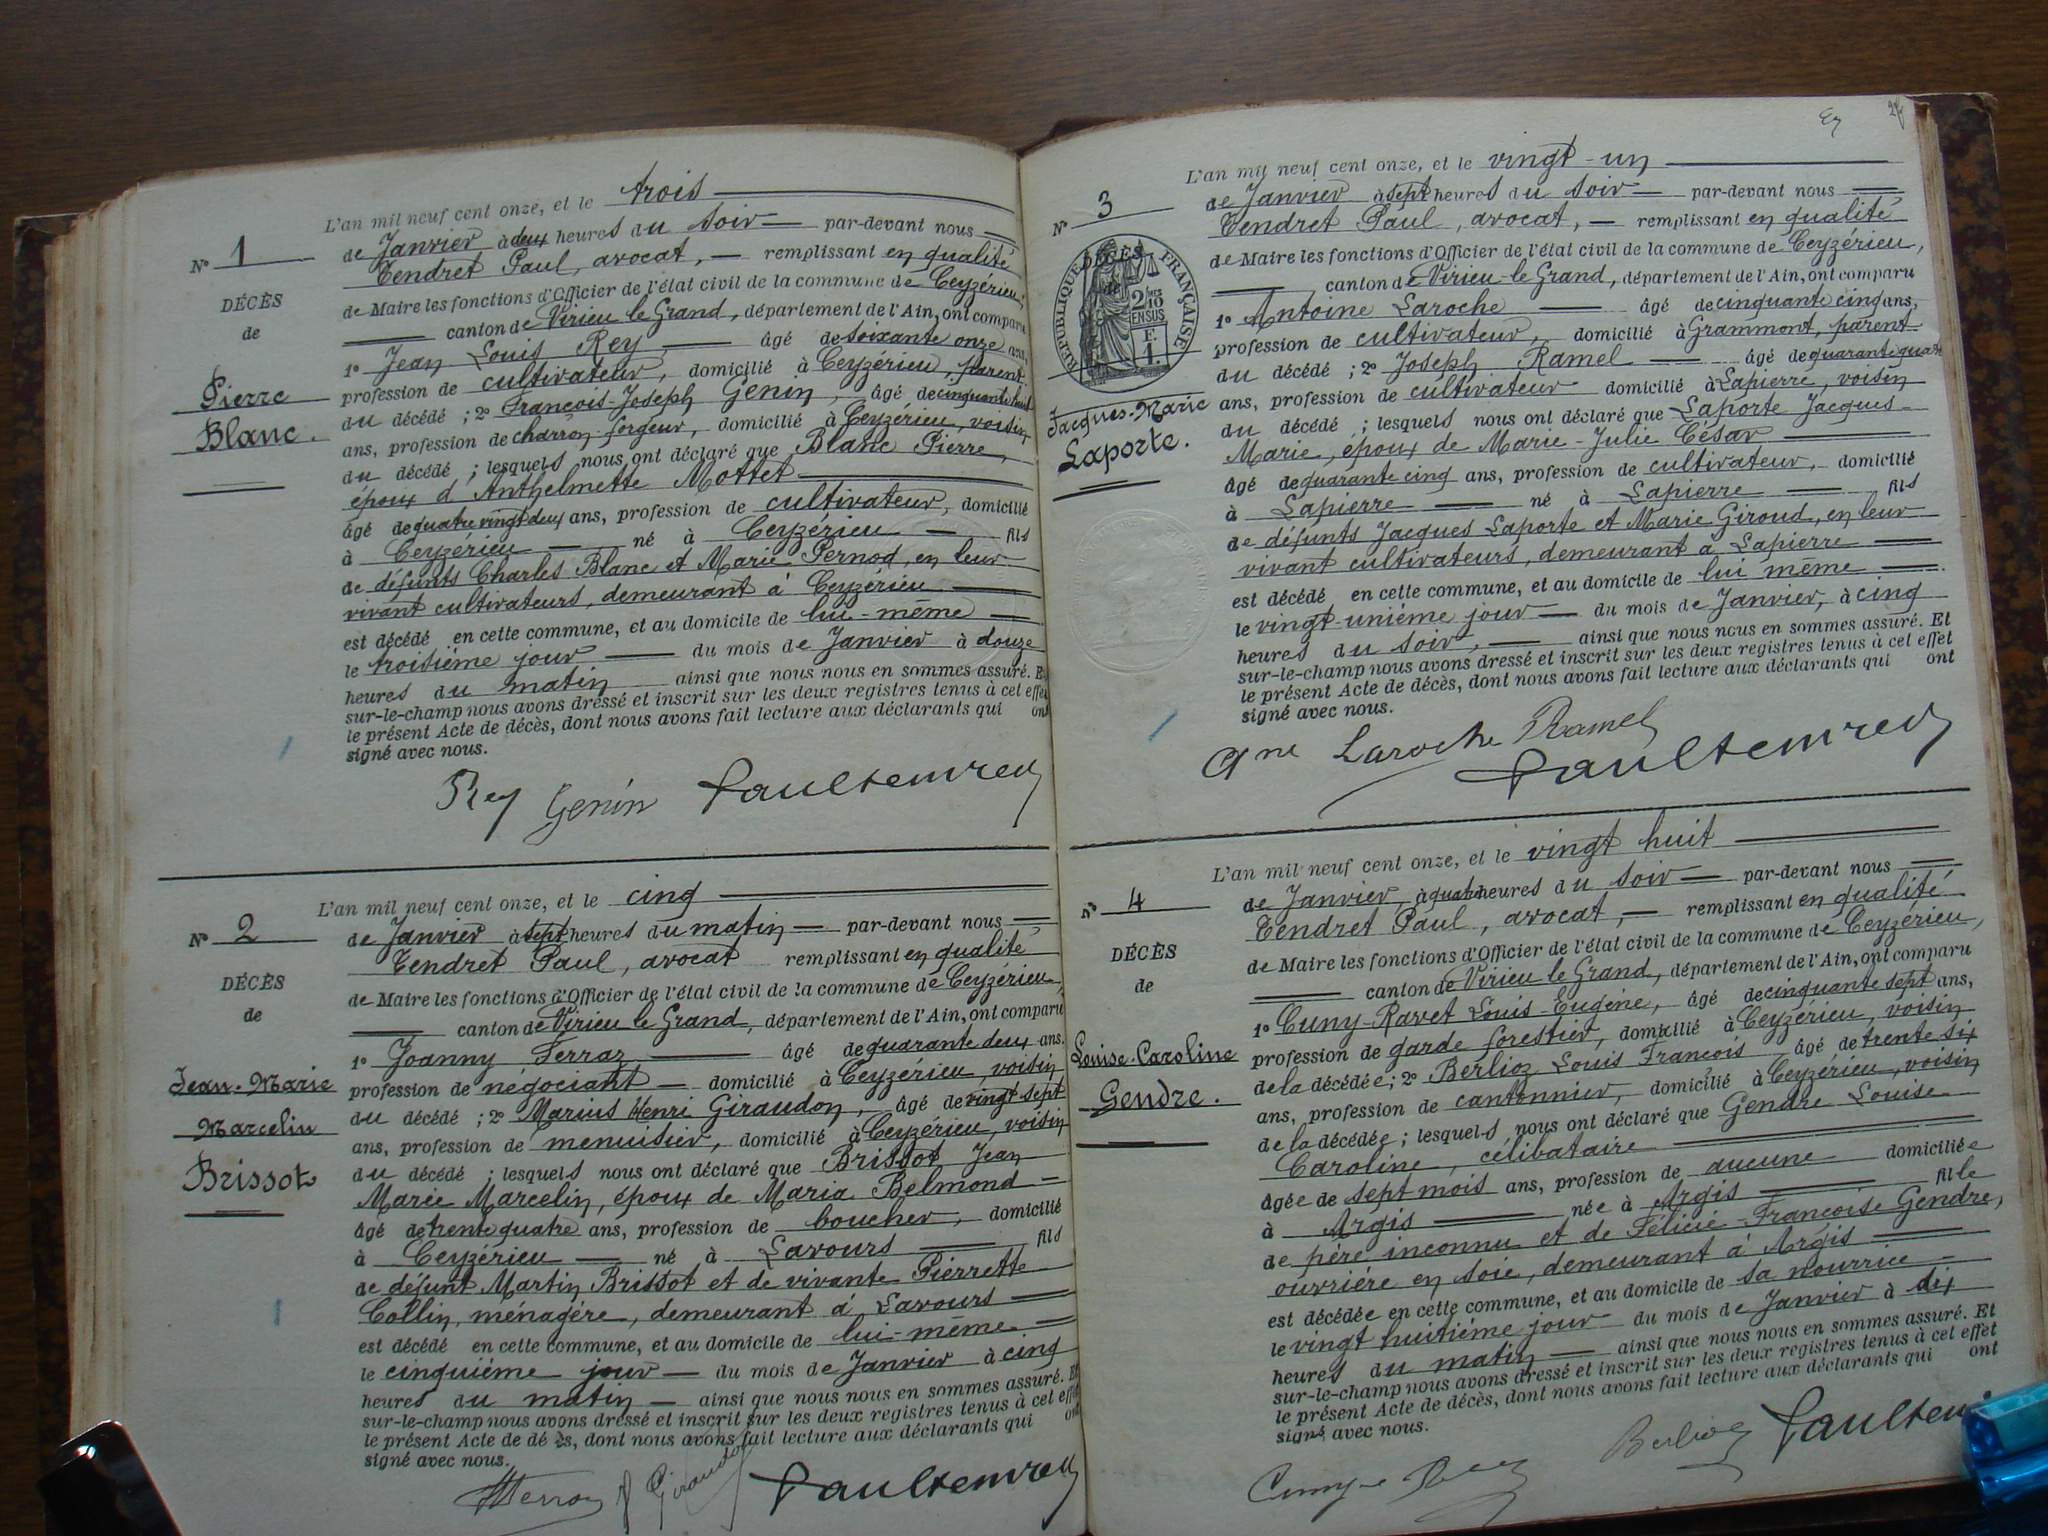 L'an mil neuf cent onze, et le trois
de Janvier à deux heures du soir par-devant nous
Nº 1
Tendret Paul, avocat, remplissant en qualité
DÉCÈS
de Maire les fonctions d'Officier de l'état civil de la commune de Ceyzérieu,
de
canton de Virieu le Grand, département de l'Ain, ont comparu
1º Jean Louis Rey âgé de soixante onze ans,
Pierre
profession de cultivateur, domicilié à Ceyzérieu, parent
Blanc.
du décédé ; 2º François-Joseph Genin, âgé de cinquante huit
ans, profession de charron forgeur, domicilié à Ceyzérieu, voisin
du décédé ; lesquels nous ont déclaré que Blanc Pierre,
époux d'Anthelmette Mottet
âgé de quatre vingt deux ans, profession de cultivateur, domicilié
à Ceyzérieu né à Ceyzérieu fils
de défunts Charles Blanc et Marie Pernod, en leur
vivant cultivateurs, demeurant à Ceyzérieu
est décédé en cette commune, et au domicile de lui-même
le troisième jour du mois de Janvier à douze
heures du matin ainsi que nous nous en sommes assuré. Et
sur-le-champ nous avons dressé et inscrit sur les deux registres tenus à cet effet
le présent Acte de décès, dont nous avons fait lecture aux déclarants qui ont
signé avec nous.
Rey Genin Paul Tendret
L'an mil neuf cent onze, et le cinq
Nº 2
de Janvier à sept heures du matin par-devant nous
Tendret Paul, avocat remplissant en qualité
DÉCÈS
de Maire les fonctions d'Officier de l'état civil de la commune de Ceyzérieu,
de
canton de Virieu le Grand, département de l'Ain, ont comparu
1º Joanny Ferraz âgé de quarante deux ans.
Jean-Marie
profession de négociant domicilié à Ceyzérieu voisin
Marcelin
du décédé ; 2º Marius Henri Giraudon, âgé de vingt sept
Brissot
ans, profession de menuisier, domicilié à Ceyzérieu, voisin
du décédé ; lesquels nous ont déclaré que Brissot Jean
Marie Marcelin, époux de Maria Belmond
âgé de trente quatre ans, profession de boucher, domicilié
à Ceyzérieu né à Lavours fils
de défunt Martin Brissot et de vivante Pierrette
Collin, ménagère, demeurant à Lavours
est décédé en cette commune, et au domicile de lui-même
le cinquième jour du mois de Janvier à cinq
heures du matin ainsi que nous nous en sommes assuré. Et
sur-le-champ nous avons dressé et inscrit sur les deux registres tenus à cet effet
le présent Acte de décès, dont nous avons fait lecture aux déclarants qui ont
signé avec nous.
Giraudon Paul Tendret
L'an mil neuf cent onze, et le vingt-un
Nº 3
de Janvier à sept heures du soir par-devant nous
Tendret Paul, avocat, remplissant en qualité
DÉCÈS
de
RÉPUBLIQUE FRANÇAISE
2/10 EN SUS
F. 1.
de Maire les fonctions d'Officier de l'état civil de la commune de Ceyzérieu,
canton de Virieu-le-Grand, département de l'Ain, ont comparu
1º Antoine Laroche âgé de cinquante cinq ans,
profession de cultivateur, domicilié à Grammont, parent
du décédé ; 2º Joseph Ramel âgé de quarante quatre
Jacques-Marie
Laporte.
ans, profession de cultivateur domicilié à Lapierre, voisin
du décédé ; lesquels nous ont déclaré que Laporte Jacques-
Marie, époux de Marie-Julie César
âgé de quarante cinq ans, profession de cultivateur, domicilié
à Lapierre né à Lapierre fils
de défunts Jacques Laporte et Marie Giroud, en leur
vivant cultivateurs, demeurant à Lapierre
est décédé en cette commune, et au domicile de lui même
le vingt-unième jour du mois de Janvier, à cinq
heures du soir, ainsi que nous nous en sommes assuré. Et
sur-le-champ nous avons dressé et inscrit sur les deux registres tenus à cet effet
le présent Acte de décès, dont nous avons fait lecture aux déclarants qui ont
signé avec nous.
Ane Laroche Ramel
Paul Tendret
L'an mil neuf cent onze, et le vingt huit
Nº 4
de Janvier, à quatre heures du soir par-devant nous
Tendret Paul, avocat, remplissant en qualité
DÉCÈS
de Maire les fonctions d'Officier de l'état civil de la commune de Ceyzérieu,
de
canton de Virieu le Grand, département de l'Ain, ont comparu
1º Cuny-Ravet Louis-Eugène, âgé de cinquante sept ans,
Louise-Caroline
profession de garde forestier, domicilié à Ceyzérieu, voisin
Gendre.
de la décédée ; 2º Berlioz Louis François âgé de trente six
ans, profession de cantonnier, domicilié à Ceyzérieu, voisin
de la décédée ; lesquels nous ont déclaré que Gendre Louise
Caroline, célibataire
âgée de sept mois ans, profession de aucune domiciliée
à Argis née à Argis fille
de père inconnu et de Félicie-Françoise Gendre,
ouvrière en soie, demeurant à Argis
est décédée en cette commune, et au domicile de sa nourrice
le vingt huitième jour du mois de Janvier à dix
heures du matin ainsi que nous nous en sommes assuré. Et
sur-le-champ nous avons dressé et inscrit sur les deux registres tenus à cet effet
le présent Acte de décès, dont nous avons fait lecture aux déclarants qui ont
signé avec nous.
Berlioz